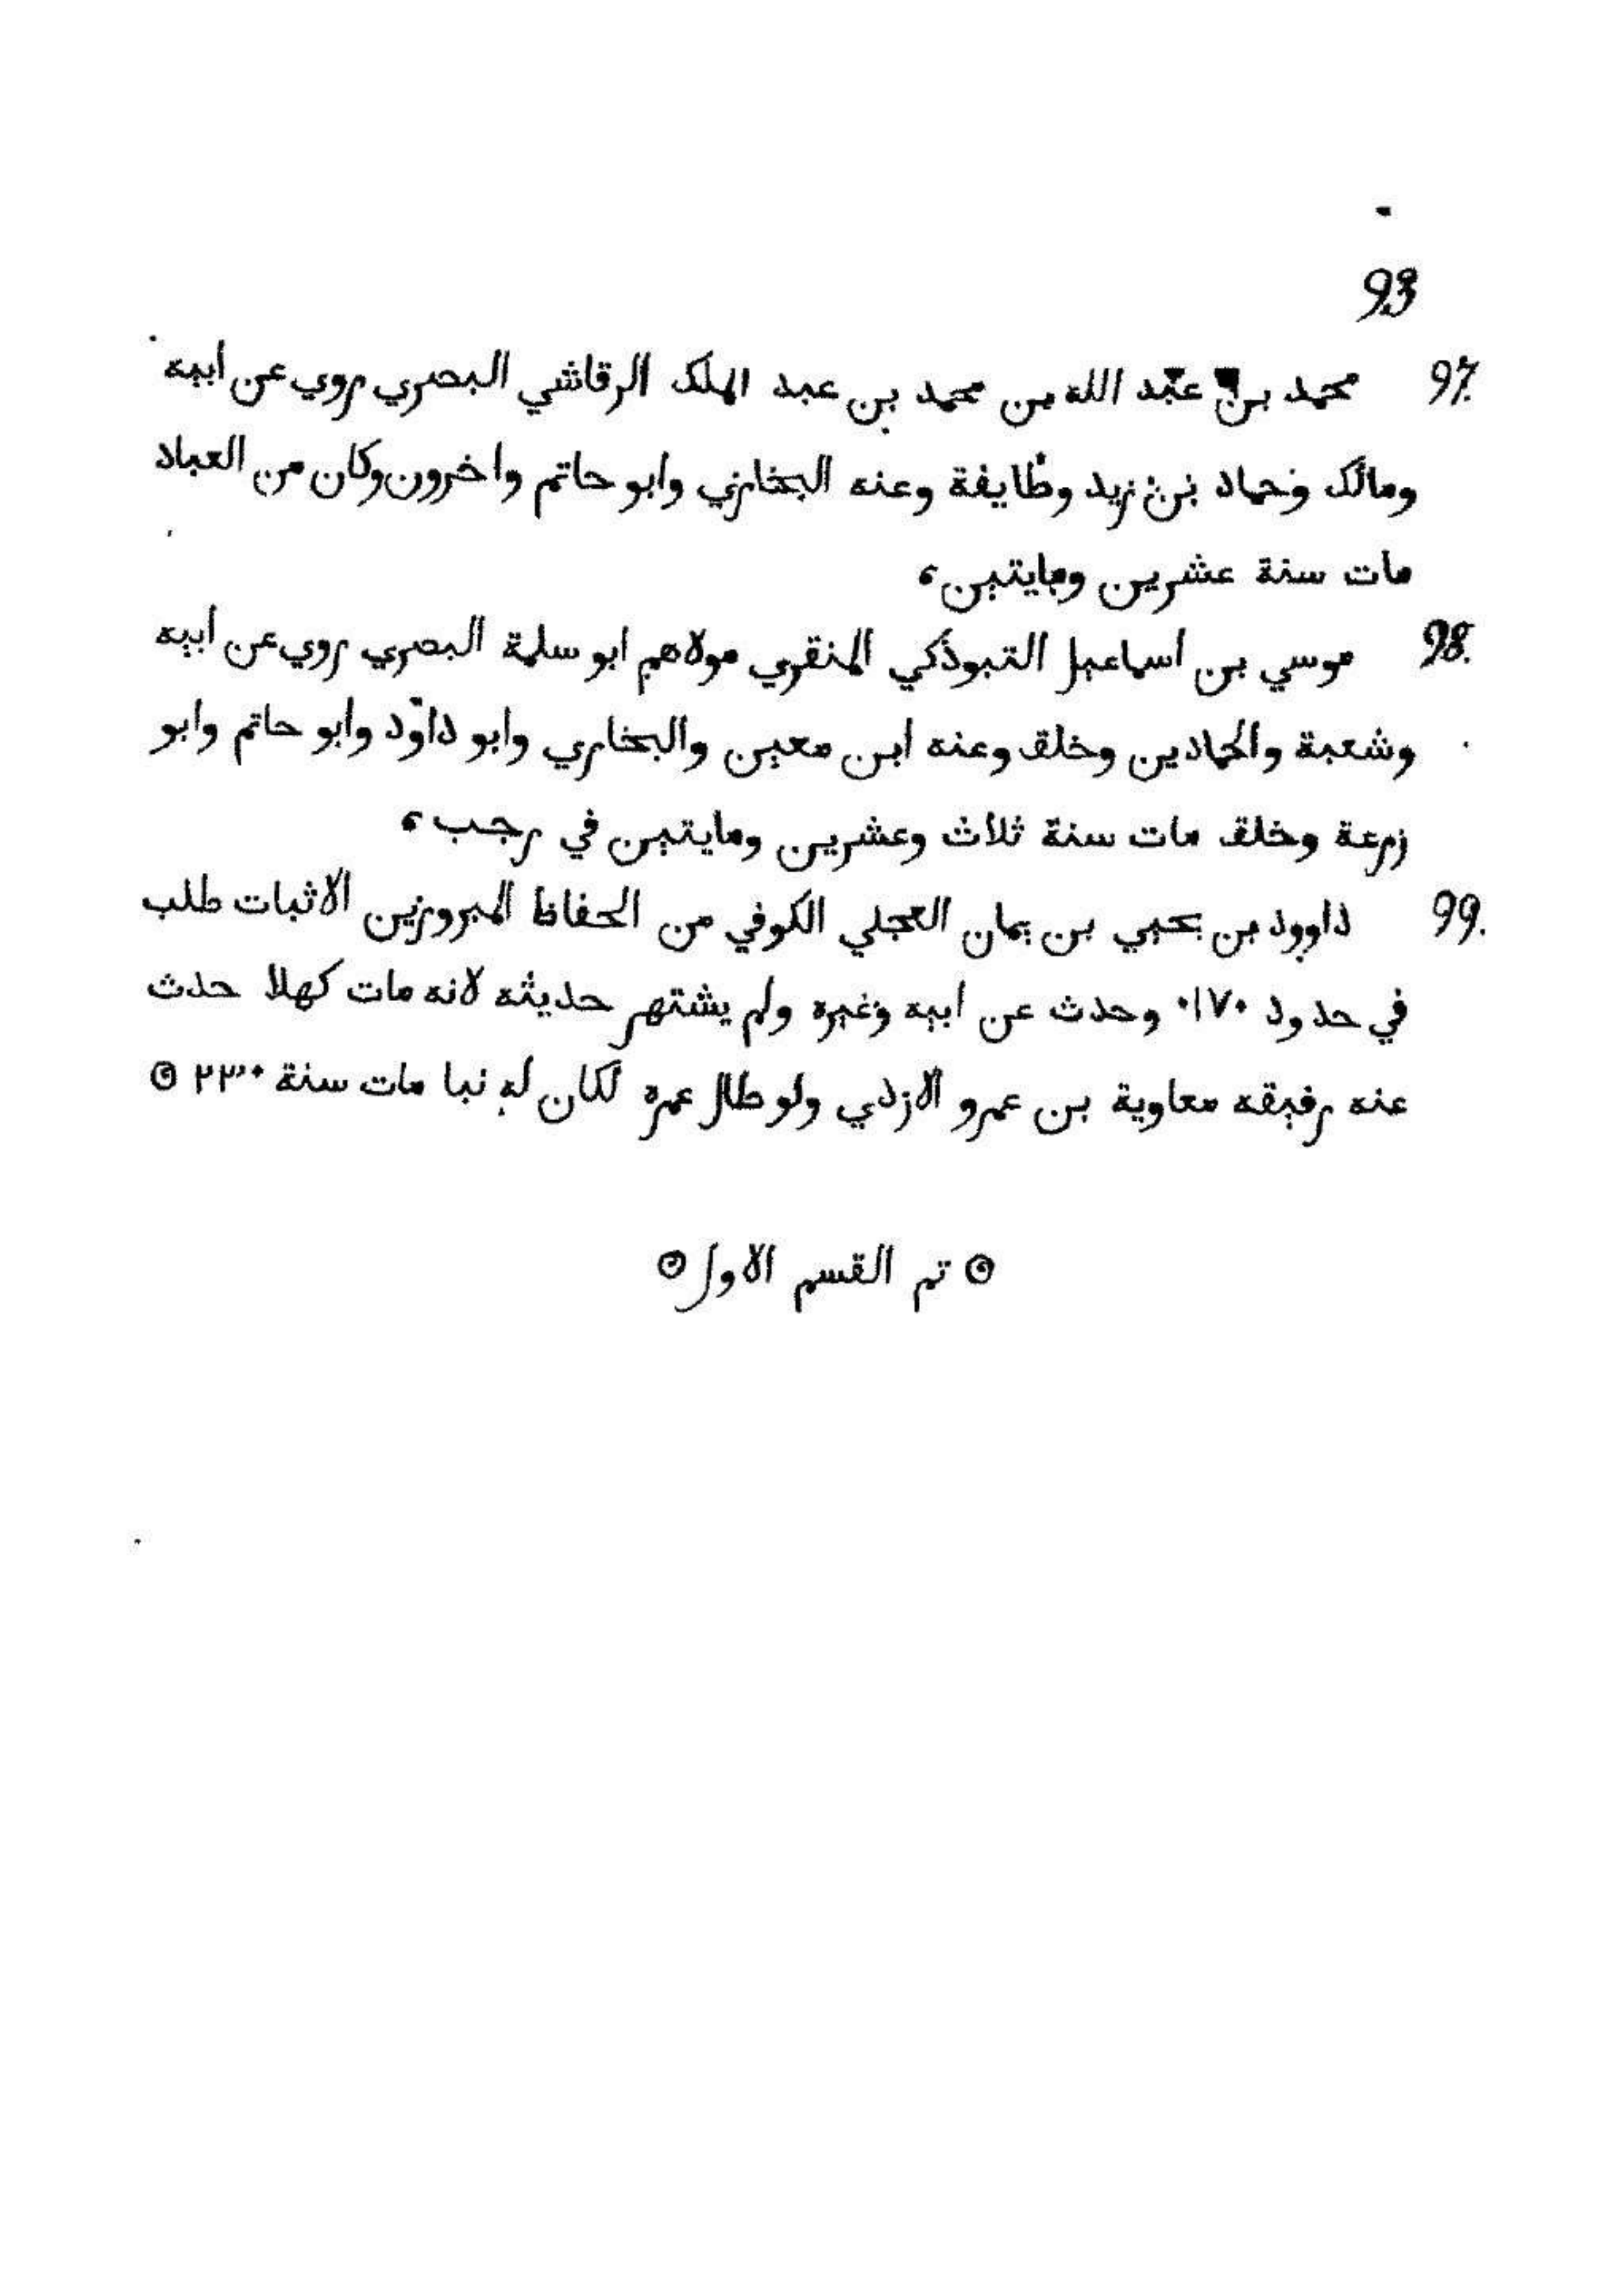 93
97. محمد بن عبد الله بن محمد بن عبد الملك الرقاشي البصري روي عن ابيه
ومالك وحماد بن زيد وطايفة وعنه البخاري وابو حاتم واخرون وكان من العباد
مات سنة عشرين ومايتين،
98. موسي بن اسماعيل التبوذكي المنقري مولاهم ابو سلمة البصري روي عن ابيه
وشعبة والحمادين وخلق وعنه ابن معين والبخاري وابو داوٓد وابو حاتم وابو
زرعة وخلق مات سنة ثلاث وعشرين ومايتين في رجب،
99. داوود بن يحيي بن يمان العجلي الكوفي من الحفاظ المبروزين الاثبات طلب
في حدود ١٧٠ وحدث عن ابيه وغيره ولم يشتهر حديثه لانه مات كهلا حدث
عنه رفيقه معاوية بن عمرو الازدي ولو طال عمره لكان له نبا مات سنة ٢٣٠ ۞
۞ تم القسم الاول ۞